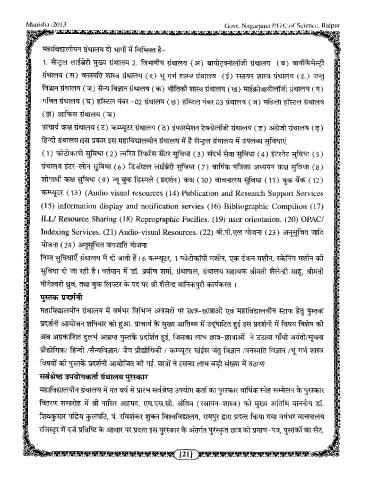 Manisha -2013 Govt. Nagarjuna P.G.C of Science, Raipur
महाविद्यालयीन ग्रंथालय दो भागों में विभिक्त है-
1. सेन्ट्रल लाईब्रेरी मुख्य ग्रंथालय 2. विभागीय ग्रंथालय (अ) बायोट्क्नोलॉजी ग्रंथालय (ब) बायोकैमेस्ट्री
ग्रंथालय (स) वनस्पति शास्त्र ग्रंथालय (द) भू गर्भ शास्त्र ग्रंथालय (ई) रसायन शास्त्र ग्रंथालय (इ.) जन्तु
विज्ञान ग्रंथालय (ज) सैन्य विज्ञान ग्रंथालय (क) भौतिकी शास्त्र ग्रंथालय (ख) माईक्रोबायोलॉजी ग्रंथालय (ग)
गणित ग्रंथालय (घ) हॉस्टल नंबर -02 ग्रंथालय (छ) हॉस्टल नंबर 03 ग्रंथालय (ज) महिला हॉस्टल ग्रंथालय
(झ) आफिस ग्रंथालय (ञ)
प्राचार्य कक्ष ग्रंथालय (ट) कम्प्यूटर ग्रंथालय (ठ) इंफारमेशन टेक्नोलॉजी ग्रंथालय (ड) अंग्रेजी ग्रंथालय (ढ़)
हिन्दी ग्रंथालय।इस प्रकार इस महाविद्यालयीन ग्रंथालय में है सेन्ट्रल ग्रंथालय में उपलब्ध सुविधाएं
(1) फोटोकापी सुविधा (2) त्वरित रिफरेंस सेंटर सुविधा (3) संदर्भ सेवा सुविधा (4) इंटरनेट सुविधा (5)
ग्रंथालय इंटर-लोन सुविधा (6) डिजीटल लाईब्रेरी सुविधा (7) वार्षिक पत्रिका अध्ययन कक्ष सुविधा (8)
शोधार्थी कक्ष सुविधा (9) न्यू बुक डिस्प्ले (प्रदर्शन) कक्ष (10) वाचनालय सुविधा (11) बुक बैंक (12)
कम्प्यूटर (13) (Audio visual resources (14) Publication and Research Support Services
(15) information display and notification servies (16) Bibliographic Compilion (17)
ILL/ Resource Sharing (18) Reprographic Facilies. (19) user orientation. (20) OPAC/
Indexing Services. (21) Audio-visual Resources. (22) बी.पी.एल योजना (23) अनुसूचित जाति
योजना (24) अनूसूचित जनजाति योजना
निम्न सुविधाएँ ग्रंथालय में दी जाती हैं।6 कम्प्यूटर, 1 फोटोकॉपी मशीन, एक टंकन मशीन, स्केनिंग मशीन की
सुविधा दी जा रही है। वर्तमान में डॉ. प्रवीण शर्मा, ग्रंथपाल, ग्रंथालय सहायक श्रीमती शैलेन्द्री साहू, श्रीमती
योगेश्वरी ध्रुव, तथा बुक लिफ्टर के पद पर श्री शैलेन्द्र मानिकपुरी कार्यरत।
पुस्तक प्रदर्शनी
महाविद्यालयीन ग्रंथालय में वर्षभर विभिन्न अवसरों पर छात्र-छात्राओं एवं महाविद्यालयीन स्टाफ हेतु पुस्तक
प्रदर्शनी आयोजन शनिवार को हुआ. प्राचार्य के मुख्य आतिथ्य में उद्घाटित हुई इस प्रदर्शनी में विषय विशेष की
अब अप्रकाशित दुलर्भ अप्राप्य पुस्तकें प्रदर्शित हुई, जिसका लाभ छात्र-छात्राओं ने उठाया गाँधी जयंती/सूचना
प्रौद्योगिकी/ हिन्दी /सैन्यविज्ञान/ जैव प्रौद्योगिकी / कम्प्यूटर साईंस जंतु विज्ञान /वनस्पति विज्ञान /भू गर्भ शास्त्र
विषयों की पुस्तकें प्रदर्शनी आयोजित की गई. छात्रों ने इसका लाभ बड़ी संख्या में उठाया
सर्वश्रेष्ठ उपयोगकर्ता ग्रंथालय पुरस्कार
महाविद्यालयीन ग्रंथालय में गत वर्ष से प्रारंभ सर्वश्रेष्ठ उपयोग कर्ता का पुरस्कार वार्षिक स्नेह सम्मेलन के पुरस्कार
वितरण समारोह में श्री नासिर अहमद, एम.एस.सी. अंतिम (रसायन-शास्त्र) को मुख्य अतिथि माननीय डॉ.
शिवकुमार पांडेय कुलपति, पं. रविशंकर शुक्ल विश्वविद्यालय, रायपुर द्वारा प्रदान किया गया वर्षभर वाचनालय
रजिस्टर में दर्ज प्रविष्टि के आधार पर प्रदत्त इस पुरस्कार के अंतर्गत पुरस्कृत छात्र को प्रमाण-पत्र, पुस्तकों का सेट,
[21]